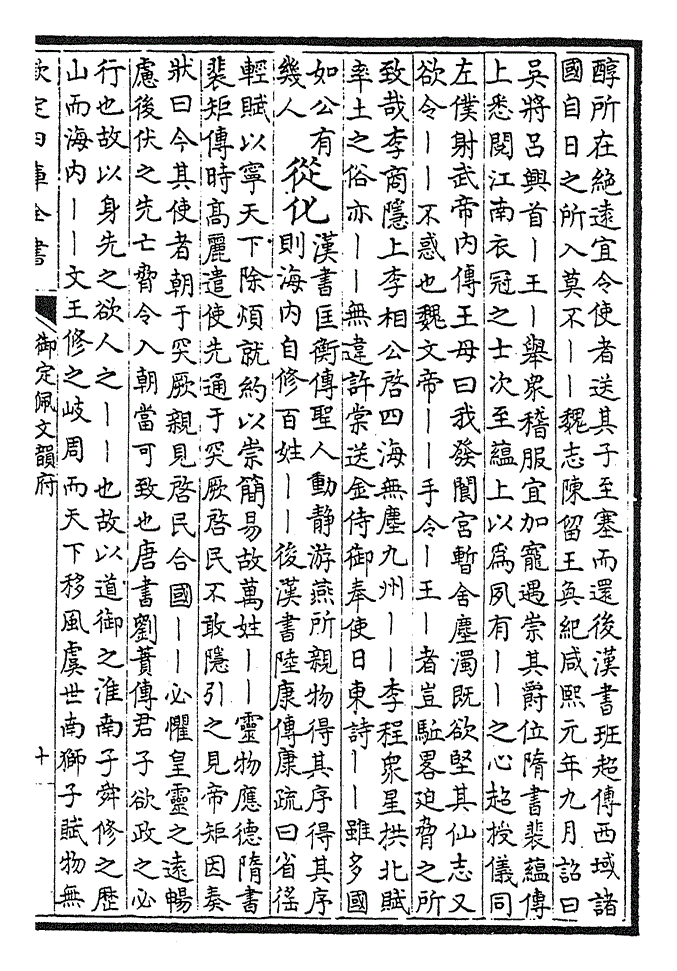 醇所在絶遠宜令使者送其子至塞而還後漢書班超傳西域諸
國自日之所入莫不丨丨魏志陳留王奐紀咸熙元年九月詔曰
吳將呂興首丨王丨舉衆稽服宜加寵遇崇其爵位隋書裴蘊傳
上悉閱江南衣冠之士次至蘊上以爲夙有丨丨之心超授儀同
左僕射武帝内傳王母曰我發閬宮暫舍塵濁既欲堅其仙志又
欲令丨丨不惑也魏文帝丨丨手令丨王丨者豈駈畧迫脅之所
致哉李商隱上李相公啓四海無塵九州丨丨李程衆星拱北賦
率土之俗亦丨丨無違許棠送金侍御奉使日東詩丨丨雖多國
如公有
幾人
從化
漢書匡衡傳聖人動静游燕所親物得其序得其序
則海内自修百姓丨丨後漢書陸康傳康疏曰省徭
輕賦以寧天下除煩就約以崇簡易故萬姓丨丨靈物應德隋書
裴矩傳時高麗遣使先通于突厥啓民不敢隱引之見帝矩因奏
狀曰今其使者朝于突厥親見啓民合國丨丨必懼皇靈之遠暢
慮後伏之先亡脅令入朝當可致也唐書劉蕡傳君子欲政之必
行也故以身先之欲人之丨丨也故以道御之淮南子舜修之歴
山而海内丨丨文王修之岐周而天下移風虞世南獅子賦物無
欽定四庫全書
御定佩文韻府
十